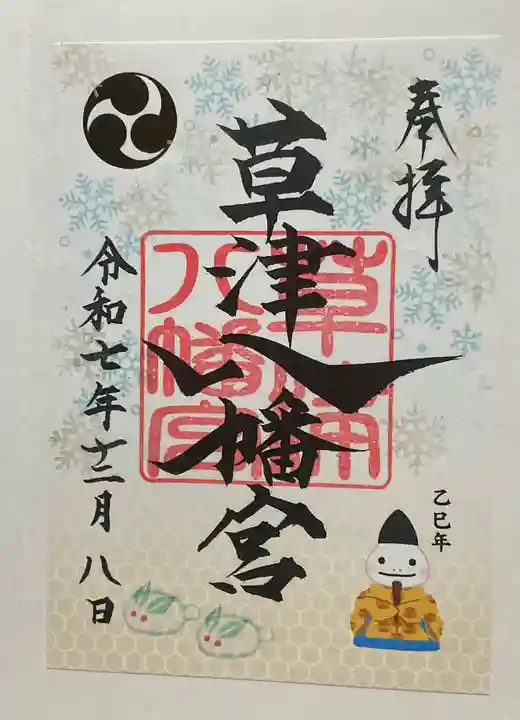 奉拝
草津八幡宮
草津八幡宮
令和七年十二月八日
乙巳年